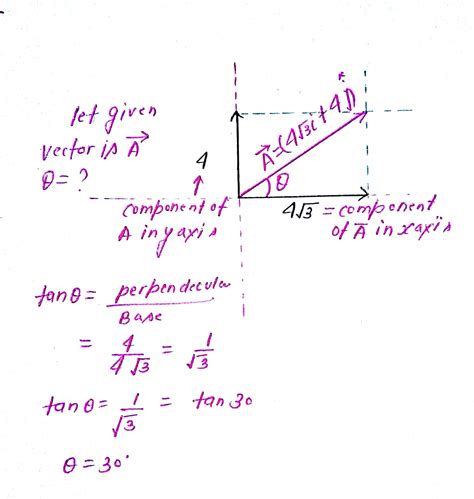 let given
vector is A⃗
θ = ?
4
A⃗ = (4√3i + 4j)
θ
component of
A in y axis
4√3 = component
of A⃗ in x axis
tanθ = perpendecular
Base
= 4/4√3 = 1/√3
tanθ = 1/√3 = tan30
θ = 30°